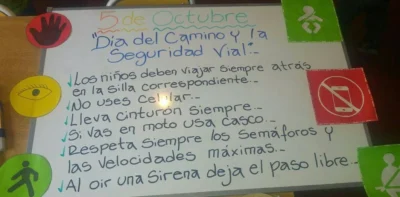 5 de Octubre
"Dia del Camino y la
Seguridad Vial"..
Los niños deben viajar siempre atrás
en la silla correspondiente...
No uses Celular...
Lleva cinturon siempre...
Si vas en moto usa casco...
Respeta siempre los Semáforos y
las velocidades máximas...
Al oir una Sirena deja el paso libre...